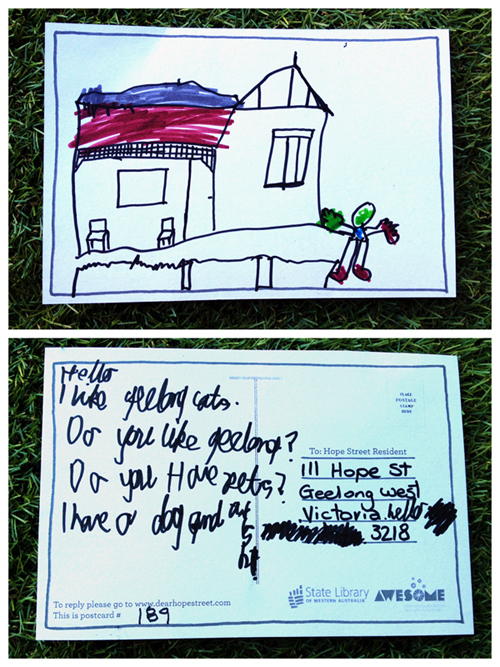 Hello
I like geelong cats.
Do you like geelong?
Do you Have pets?
I have a dog and
PLACE
POSTAGE
STAMP
HERE
To: Hope Street Resident
111 Hope St
Geelong West
Victoria. hello
3218
State Library
OF WESTERN AUSTRALIA
AWESOME
To reply please go to www.dearhopestreet.com
This is postcard # 189